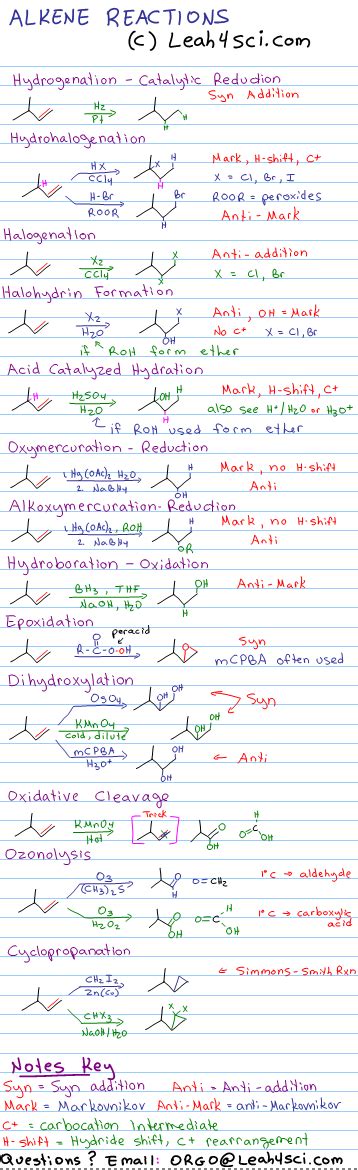 ALKENE REACTIONS
(C) Leah4Sci.com
Hydrogenation - Catalytic Reduction
H2
Pt
H
H
Syn Addition
Hydrohalogenation
H
HX
CCl4
X
H
H
Mark, H-shift, C+
X = Cl, Br, I
H-Br
ROOR
Br
H
ROOR = peroxides
Anti - Mark
Halogenation
X2
CCl4
X
X
Anti - addition
X = Cl, Br
Halohydrin Formation
X2
H2O
X
OH
Anti, OH = Mark
No C+ X = Cl, Br
if ROH form ether
Acid Catalyzed Hydration
H
H2SO4
H2O
OH
H
H
Mark, H-shift, C+
also see H+/H2O or H3O+
if ROH used form ether
Oxymercuration - Reduction
1. Hg(OAc)2 H2O
2. NaBH4
H
OH
Mark, no H-shift
Anti
Alkoxymercuration-Reduction
1. Hg(OAc)2, ROH
2. NaBH4
H
OR
Mark, no H-shift
Anti
Hydroboration - Oxidation
BH3, THF
NaOH, H2O
OH
H
Anti-Mark
Epoxidation
peracid
O
R-C-O-OH
O
Syn
mCPBA often used
Dihydroxylation
OsO4
OH
OH
Syn
KMnO4
cold, dilute
OH
OH
mCPBA
H3O+
OH
OH
← Anti
Oxidative Cleavage
KMnO4
Hot
Trick
O
OH
O
H
C
OH
Ozonolysis
O3
(CH3)2S
O
H
O=CH2
1°C → aldehyde
O3
H2O2
O
OH
O=C
H
OH
1°C → carboxylic
acid
Cyclopropanation
CH2I2
Zn(Cu)
← Simmons-Smith Rxn
CHX3
NaOH/H2O
X
X
Notes Key
Syn = Syn addition Anti = Anti-addition
Mark = Markovnikov Anti-Mark = anti-Markovnikov
C+ = carbocation Intermediate
H-shift = Hydride shift, C+ rearrangement
Questions? Email: ORGO@Leah4sci.com